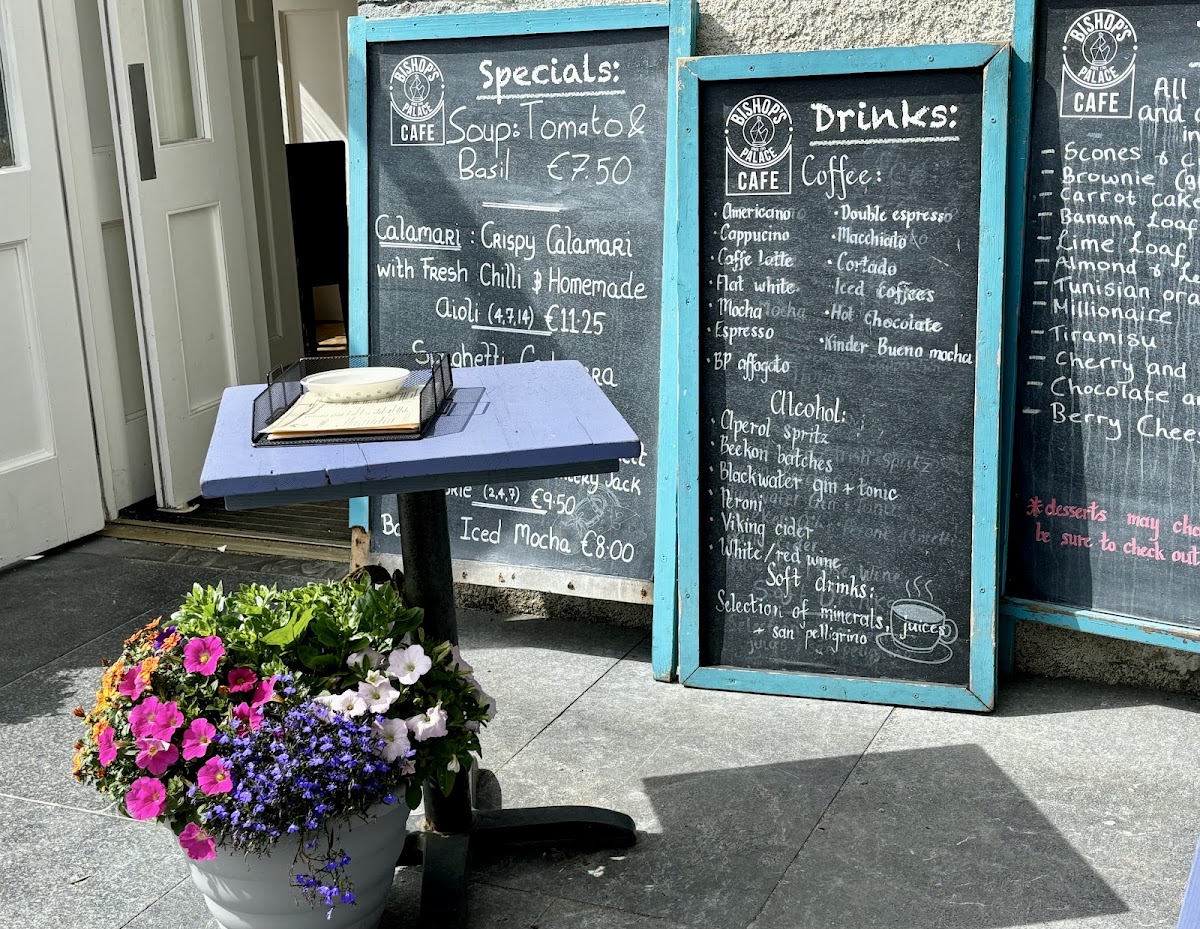 BISHOP'S
PALACE
CAFE
Specials:
Soup: Tomato &
Basil €7.50
Calamari: Crispy Calamari
with Fresh Chilli & Homemade
Aioli (4,7,14) €11.25
Spaghetti
Jack
(2,4,7) €9.50
Iced Mocha €8.00
BISHOP'S
PALACE
CAFE
Drinks:
Coffee:
• Americano
• Cappucino
• Caffe latte
• Flat white
• Mocha
• Espresso
• BP affogato
• Double espresso
• Macchiato
• Cortado
• Iced Coffees
• Hot Chocolate
• Kinder Bueno mocha
Alcohol:
• Aperol spritz
• Beekon batches
• Blackwater gin + tonic
• Peroni
• Viking cider
• White/red wine
Soft drinks:
Selection of minerals,
+ san pelligrino
juices
BISHOP'S
PALACE
CAFE
All
and
- Scones &
- Brownie
- Carrot cake
- Banana Loaf
- Lime Loaf
- Almond &
- Tunisian
- Millionaire
- Tiramisu
- Cherry and
- Chocolate
- Berry
*desserts may
be sure to check out